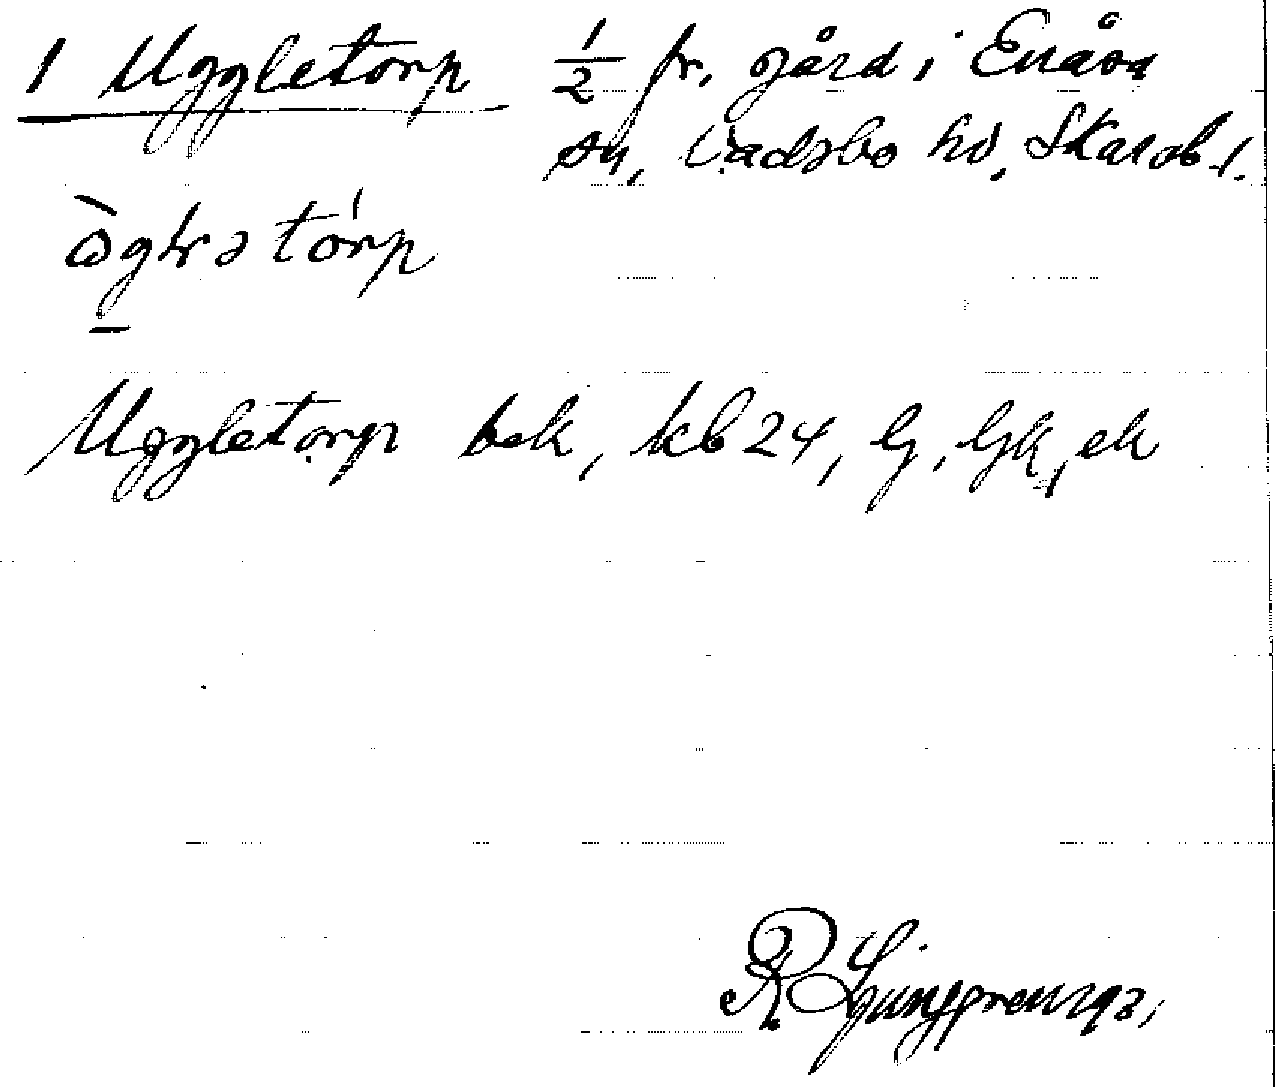 1 Uggletorp ½ fr. gård i Enåsa
sn, Vadsbo hd, Skarab. l.
Uggletorp bek, kb 24, G, Gk, ek
R Ljunggren